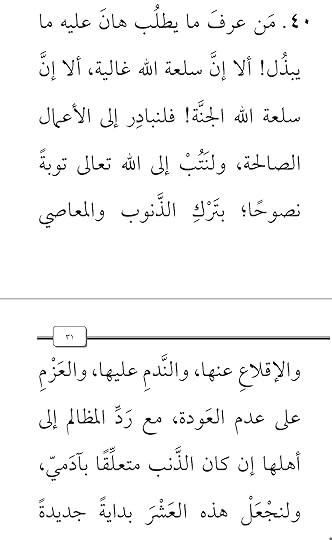 ٤٠. مَن عرفَ ما يطلُب هانَ عليه ما
يبذُل! ألا إنَّ سلعة الله غالية، ألا إنَّ
سلعة الله الجنَّة! فلنبادِر إلى الأعمال
الصالحة، ولنَتُبْ إلى الله تعالى توبةً
نصوحًا؛ بتَرْكِ الذَّنوب والمعاصي
٣١
والإقلاعِ عنها، والنَّدمِ عليها، والعَزْمِ
على عدم العَودة، مع رَدِّ المظالم إلى
أهلها إن كان الذَّنب متعلِّقًا بآدَميّ،
ولنجْعَلْ هذه العَشْرَ بدايةً جديدةً